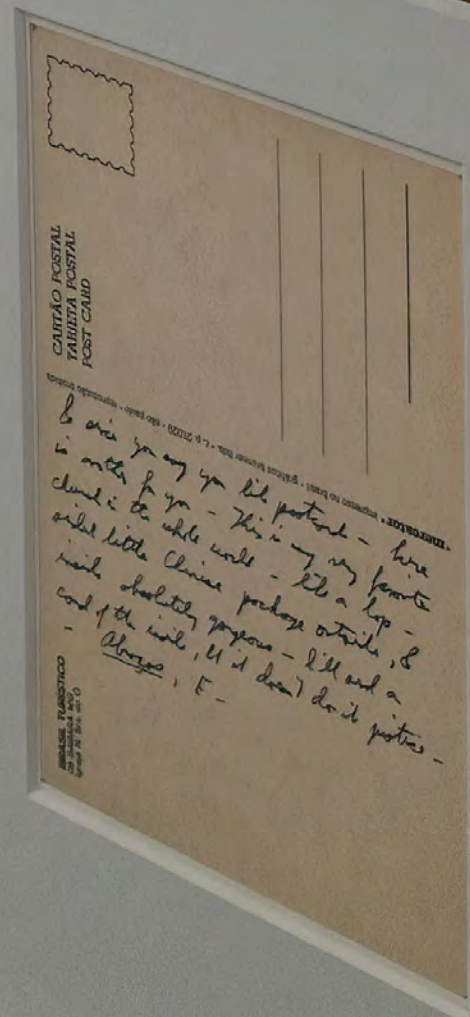 CARTÃO POSTAL
TARJETA POSTAL
POST CARD
mercator • impresso no brasil • gráficos brunner ltda. • c. p. 21029 - são paulo - reprodução proibida
BRASIL TURÍSTICO
& since you say you like postcards – here
is another for you – This is my very favorite
church in the whole world – like a lop-
sided little Chinese package outside, &
inside absolutely gorgeous – I'll send a
card of the inside, but it doesn't do it justice –
– Abraços, E –